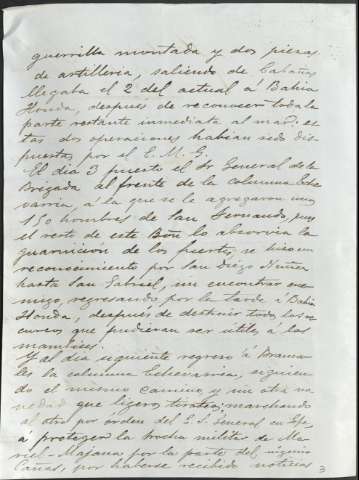 guerrilla montada y dos piezas
de artilleria, saliendo de Cabañas
llegaba el 2 del actual á Bahia
Honda, después de reconocer toda la
parte restante inmediata al mar. es-
tas dos operaciones habian sido dis-
puestas por el E. M. G.
El dia 3 puesto el Sr General de la
Brigada al frente de la columna Eche-
varria, á la que se le agregaron unos
150 hombres de San Fernando, pues
el resto de este Bon lo absorvia la
guarnición de los fuertes, se hizo un
reconocimiento por San Diego Nuñez
hasta San Gabriel, sin encontrar ene-
migo, regresando por la tarde á Bahia
Honda, después de destruir todos los re-
cursos que pudieran ser útiles á los
mambises.
Y al dia siguiente regresó á
la columna Echevarria, siguien-
do el mismo camino y sin otra no-
vedad que ligeros tiroteos; marchando
al otro por orden del E. S. General en Jefe,
á proteger la trocha militar de Ma-
riel-Majana por la parte del ingenio
Cañas, por haberse recibido noticias
3